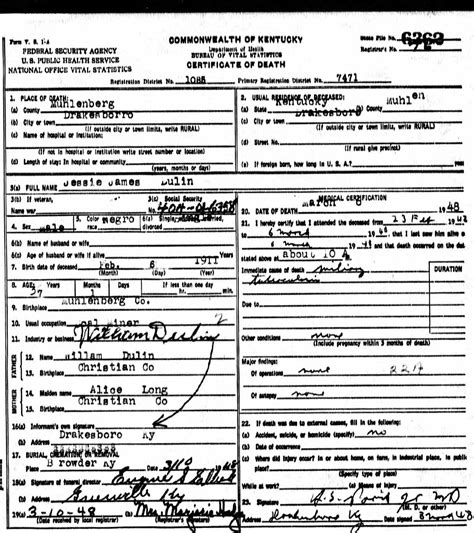 Form V. S. 1-A
FEDERAL SECURITY AGENCY
U. S. PUBLIC HEALTH SERVICE
NATIONAL OFFICE VITAL STATISTICS
COMMONWEALTH OF KENTUCKY
Department of Health
BUREAU OF VITAL STATISTICS
CERTIFICATE OF DEATH
State File No.
Registrar's No.
Registration District No. 1085
Primary Registration District No. 7471
1. PLACE OF DEATH:
(a) County Muhlenberg
(b) City or town Drakesborro
(If outside city or town limits, write RURAL)
(c) Name of hospital or institution:
(If not in hospital or institution write street number or location)
(d) Length of stay: In hospital or community
(years, months or days)
2. USUAL RESIDENCE OF DECEASED:
(a) State Kentucky (b) County Muhlen
(c) City or town Drakesboro
(If outside city or town limits, write RURAL)
(d) Street No.
(If rural give precinct)
(e) If foreign born, how long in U. S. A.?
3(a) FULL NAME Jessie James Dulin
3(b) If veteran,
Name war
3(c) Social Security
No.
4. Sex male
5. Color negro
race
6(a) Single,
divorced
6(b) Name of husband or wife
6(c) Age of husband or wife if alive
7. Birth date of deceased Feb. 6 1911
(Month) (Day) (Year)
8. AGE: Years Months Days If less than one day
37 1 hr. min.
9. Birthplace Muhlenberg Co.
10. Usual occupation
11. Industry or business
FATHER
12. Name Willam Dulin
13. Birthplace Christian Co
MOTHER
14. Maiden name Alice Long
15. Birthplace Christian Co
16(a) Informant's own signature
(b) Address Drakesboro Ky
17. BURIAL, CREMATION OR REMOVAL
Place Browder Ky Date 3/10 48
18(a) Signature of funeral director
(b) Address Greenville Ky
19(a) 3-10-48 (b) Mrs. Marjorie
(Date received by local registrar) (Registrar's signature)
MEDICAL CERTIFICATION
20. DATE OF DEATH March 1948
21. I hereby certify that I attended the deceased from 23 Feb 1948
to 6 1948 that I last saw him alive
6 1948 and that death occurred on the date
stated above at about 10
Immediate cause of death miliary
tuberculosis
DURATION
Due to
Other conditions none
(Include pregnancy within 3 months of death)
Major findings:
Of operations none
Of autopsy none
22. If death was due to external causes, fill in the following:
(a) Accident, suicide, or homicide (specify) no
(b) Date of occurrence
(c) Where did injury occur? In or about home, on farm, in industrial place, in public
place?
(Specify type of place)
While at work? (e) Means of injury
23. Signature
(M. D. or other)
Address Drakesboro Ky Date signed